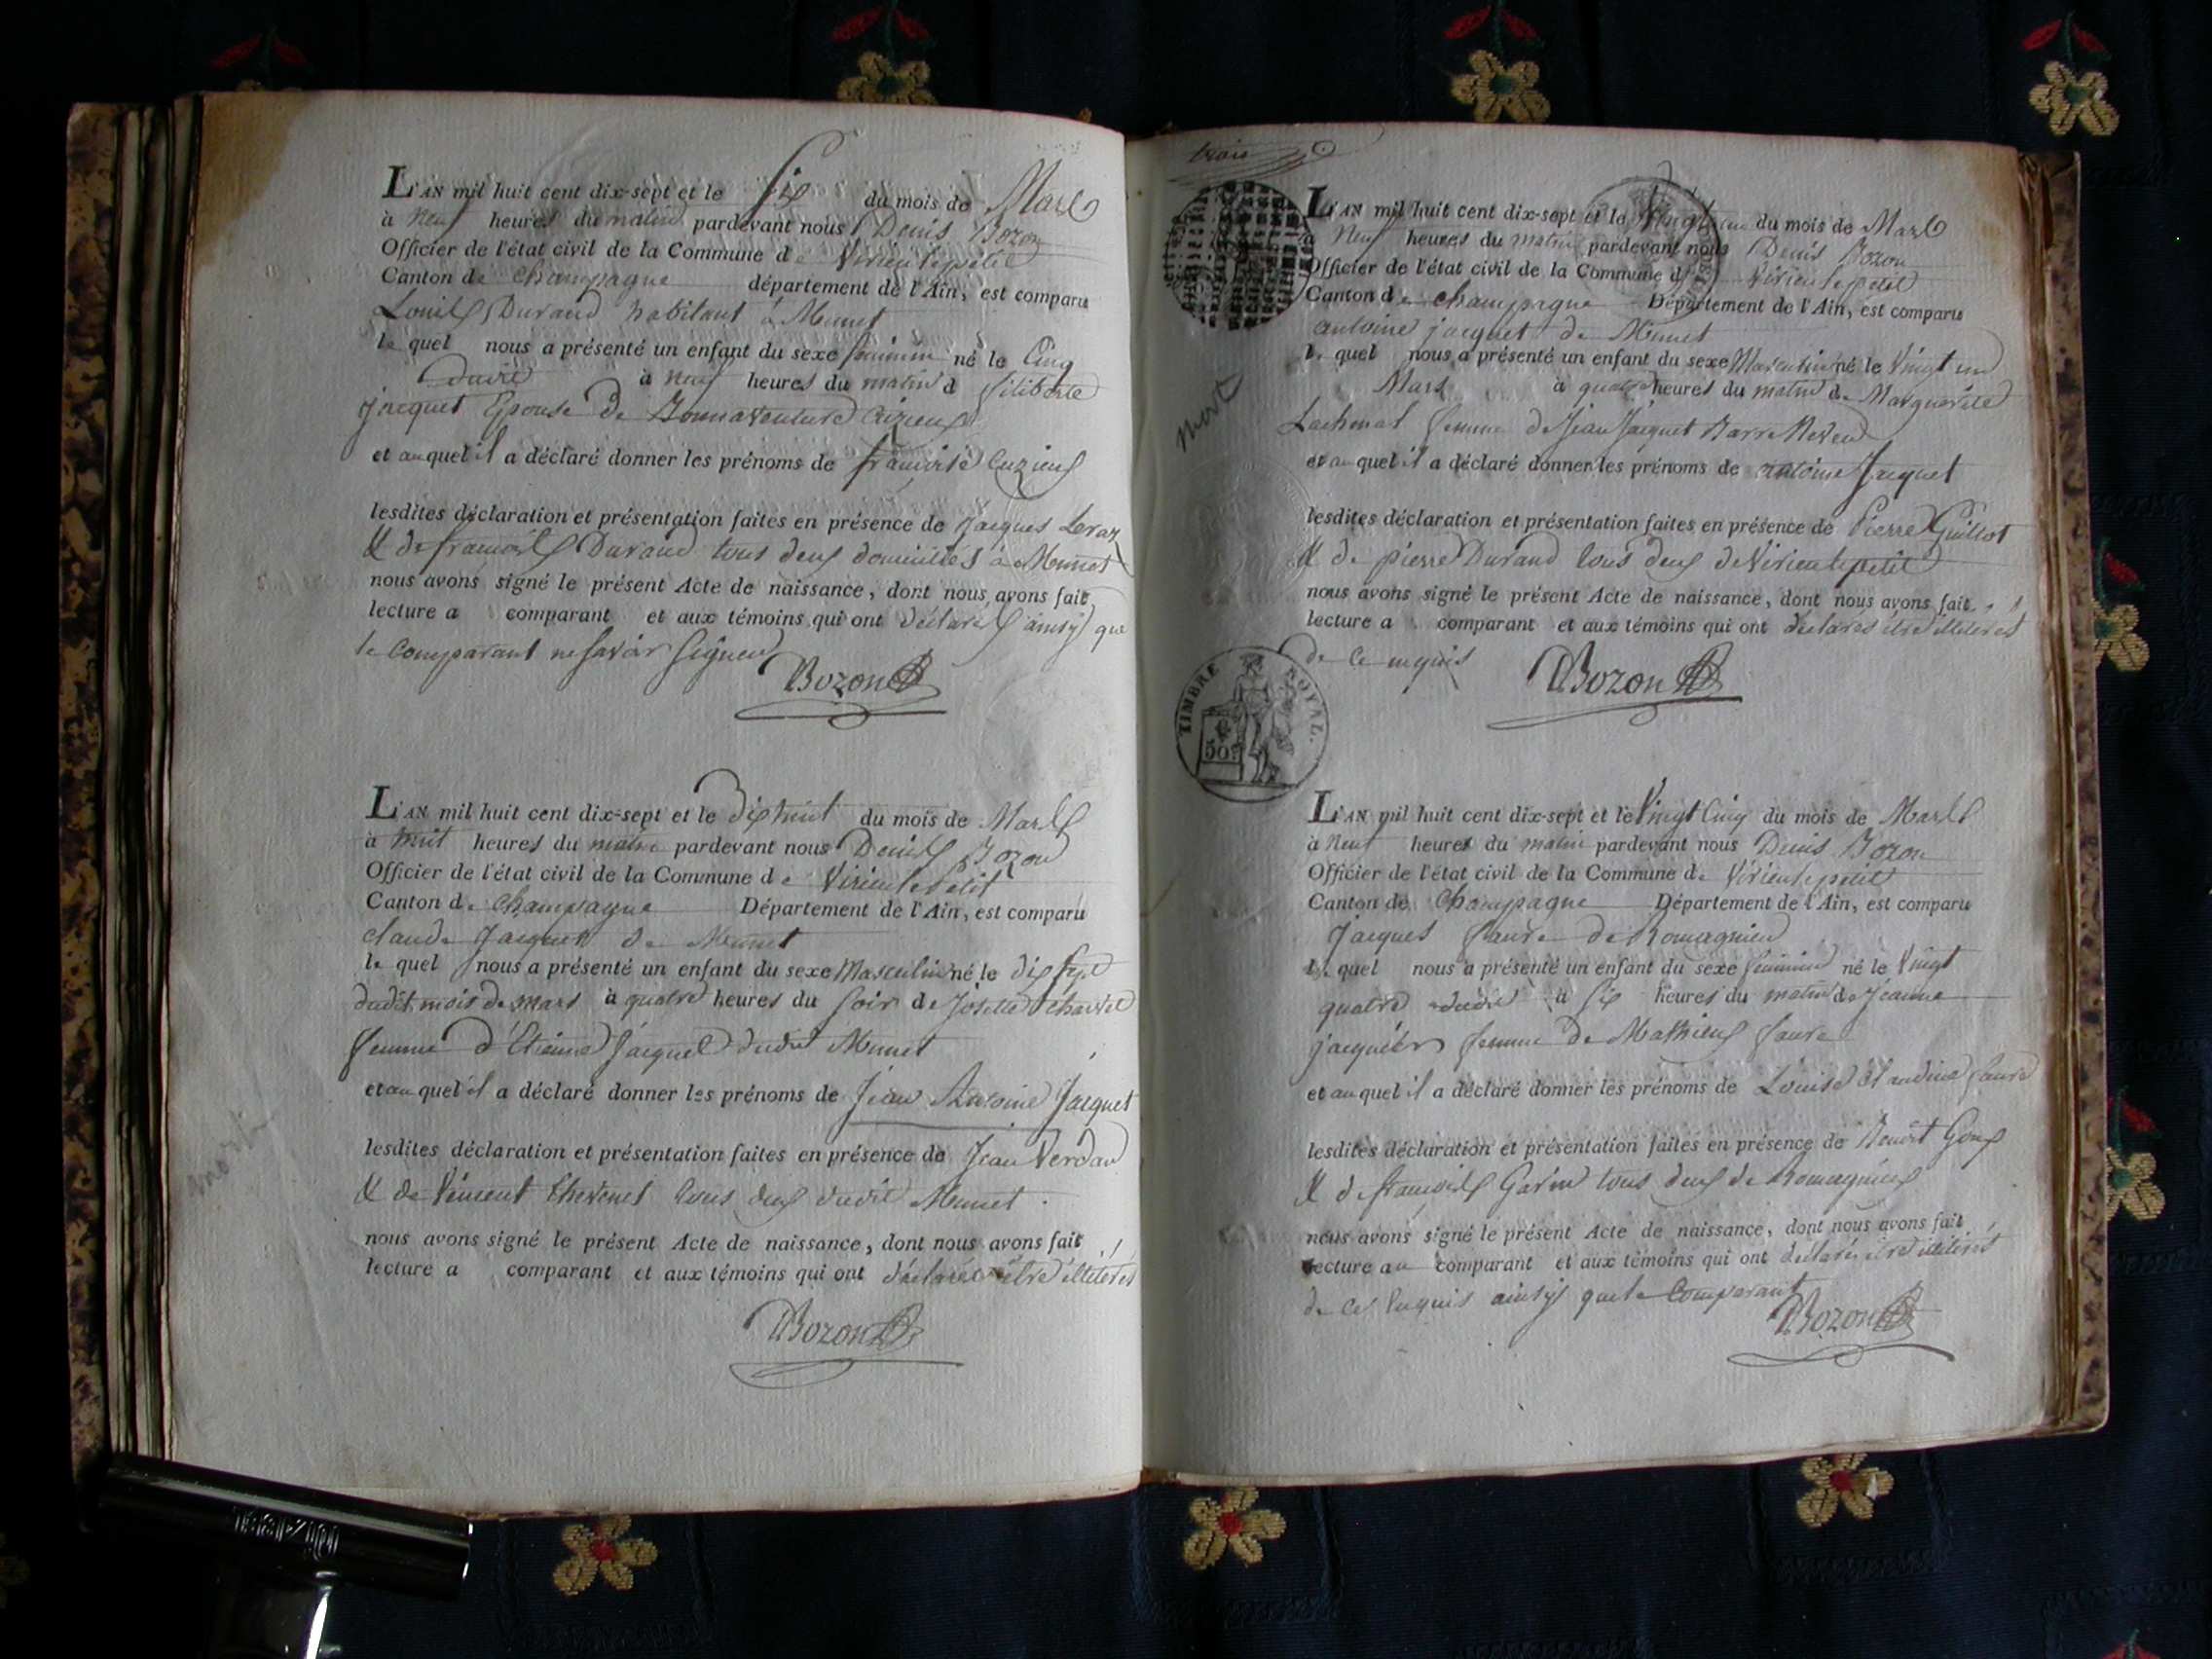 L'AN mil huit cent dix-sept et le Six du mois de Mars
à neuf heures du matin pardevant nous Denis Bozon
Officier de l'état civil de la Commune de Virieu le petit
Canton de Champagne département de l'Ain, est comparu
Louis Durand habitant à Munet
le quel nous a présenté un enfant du sexe feminin né le Cinq
dudit à neuf heures du matin d filiberte
jacquet Epouse de Bonnaventure Cuzieux
et au quel il a déclaré donner les prénoms de françoise Cuzieux
lesdites déclaration et présentation faites en présence de Jacques
& de françois Durand tous deux domiciliés à Munet
nous avons signé le présent Acte de naissance, dont nous avons fait
lecture a comparant et aux témoins qui ont déclarés ainsÿ que
le Comparant ne savoir Signer
Bozon
L'AN mil huit cent dix-sept et le Dix huit du mois de Mars
à huit heures du matin pardevant nous Denis Bozon
Officier de l'état civil de la Commune de Virieu le Petit
Canton de Champagne Département de l'Ain, est comparu
claude Jacquet de Munet
le quel nous a présenté un enfant du sexe Masculin né le dix sept
dudit mois de mars à quatre heures du Soir de Josette
femme d'Etienne Jacquet dudit Munet
et au quel il a déclaré donner les prénoms de Jean Antoine Jacquet
lesdites déclaration et présentation faites en présence de Jean
& de Vincent Thevenet tous deux dudit Munet
nous avons signé le présent Acte de naissance, dont nous avons fait
lecture a comparant et aux témoins qui ont déclarés être illiterés
Bozon
mort
trois
L'AN mil huit cent dix-sept et le du mois de Mars
à Neuf heures du matin pardevant nous Denis Bozon
Officier de l'état civil de la Commune de Virieu le petit
Canton de Champagne Département de l'Ain, est comparu
antoine jacquet de Munet
le quel nous a présenté un enfant du sexe Masculin né le Vingt un
Mars à quatre heures du matin de Marguerite
Lachmat femme de Jean Jacquet
et au quel il a déclaré donner les prénoms de antoine Jacquet
lesdites déclaration et présentation faites en présence de Pierre Guillot
& de pierre Durand tous deux de Virieu le petit
nous avons signé le présent Acte de naissance, dont nous avons fait
lecture a comparant et aux témoins qui ont déclarés être illiterés
de ce enquis
Bozon
mort
TIMBRE ROYAL.
50
L'AN mil huit cent dix-sept et le Vingt Cinq du mois de Mars
à Neuf heures du matin pardevant nous Denis Bozon
Officier de l'état civil de la Commune de Virieu le petit
Canton de Champagne Département de l'Ain, est comparu
Jacques faure de Romagnieu
le quel nous a présenté un enfant du sexe feminin né le Vingt
quatre dudit à Six heures du matin de Jeanne
femme de Mathieu faure
et au quel il a déclaré donner les prénoms de Louise Claudine faure
lesdites déclaration et présentation faites en présence de Benoit
& de françois Garin tous deux de Romagnieu
nous avons signé le présent Acte de naissance, dont nous avons fait
lecture au comparant et aux témoins qui ont déclarés être illiterés
de ce Enquis ainsÿ que le Comparant
Bozon